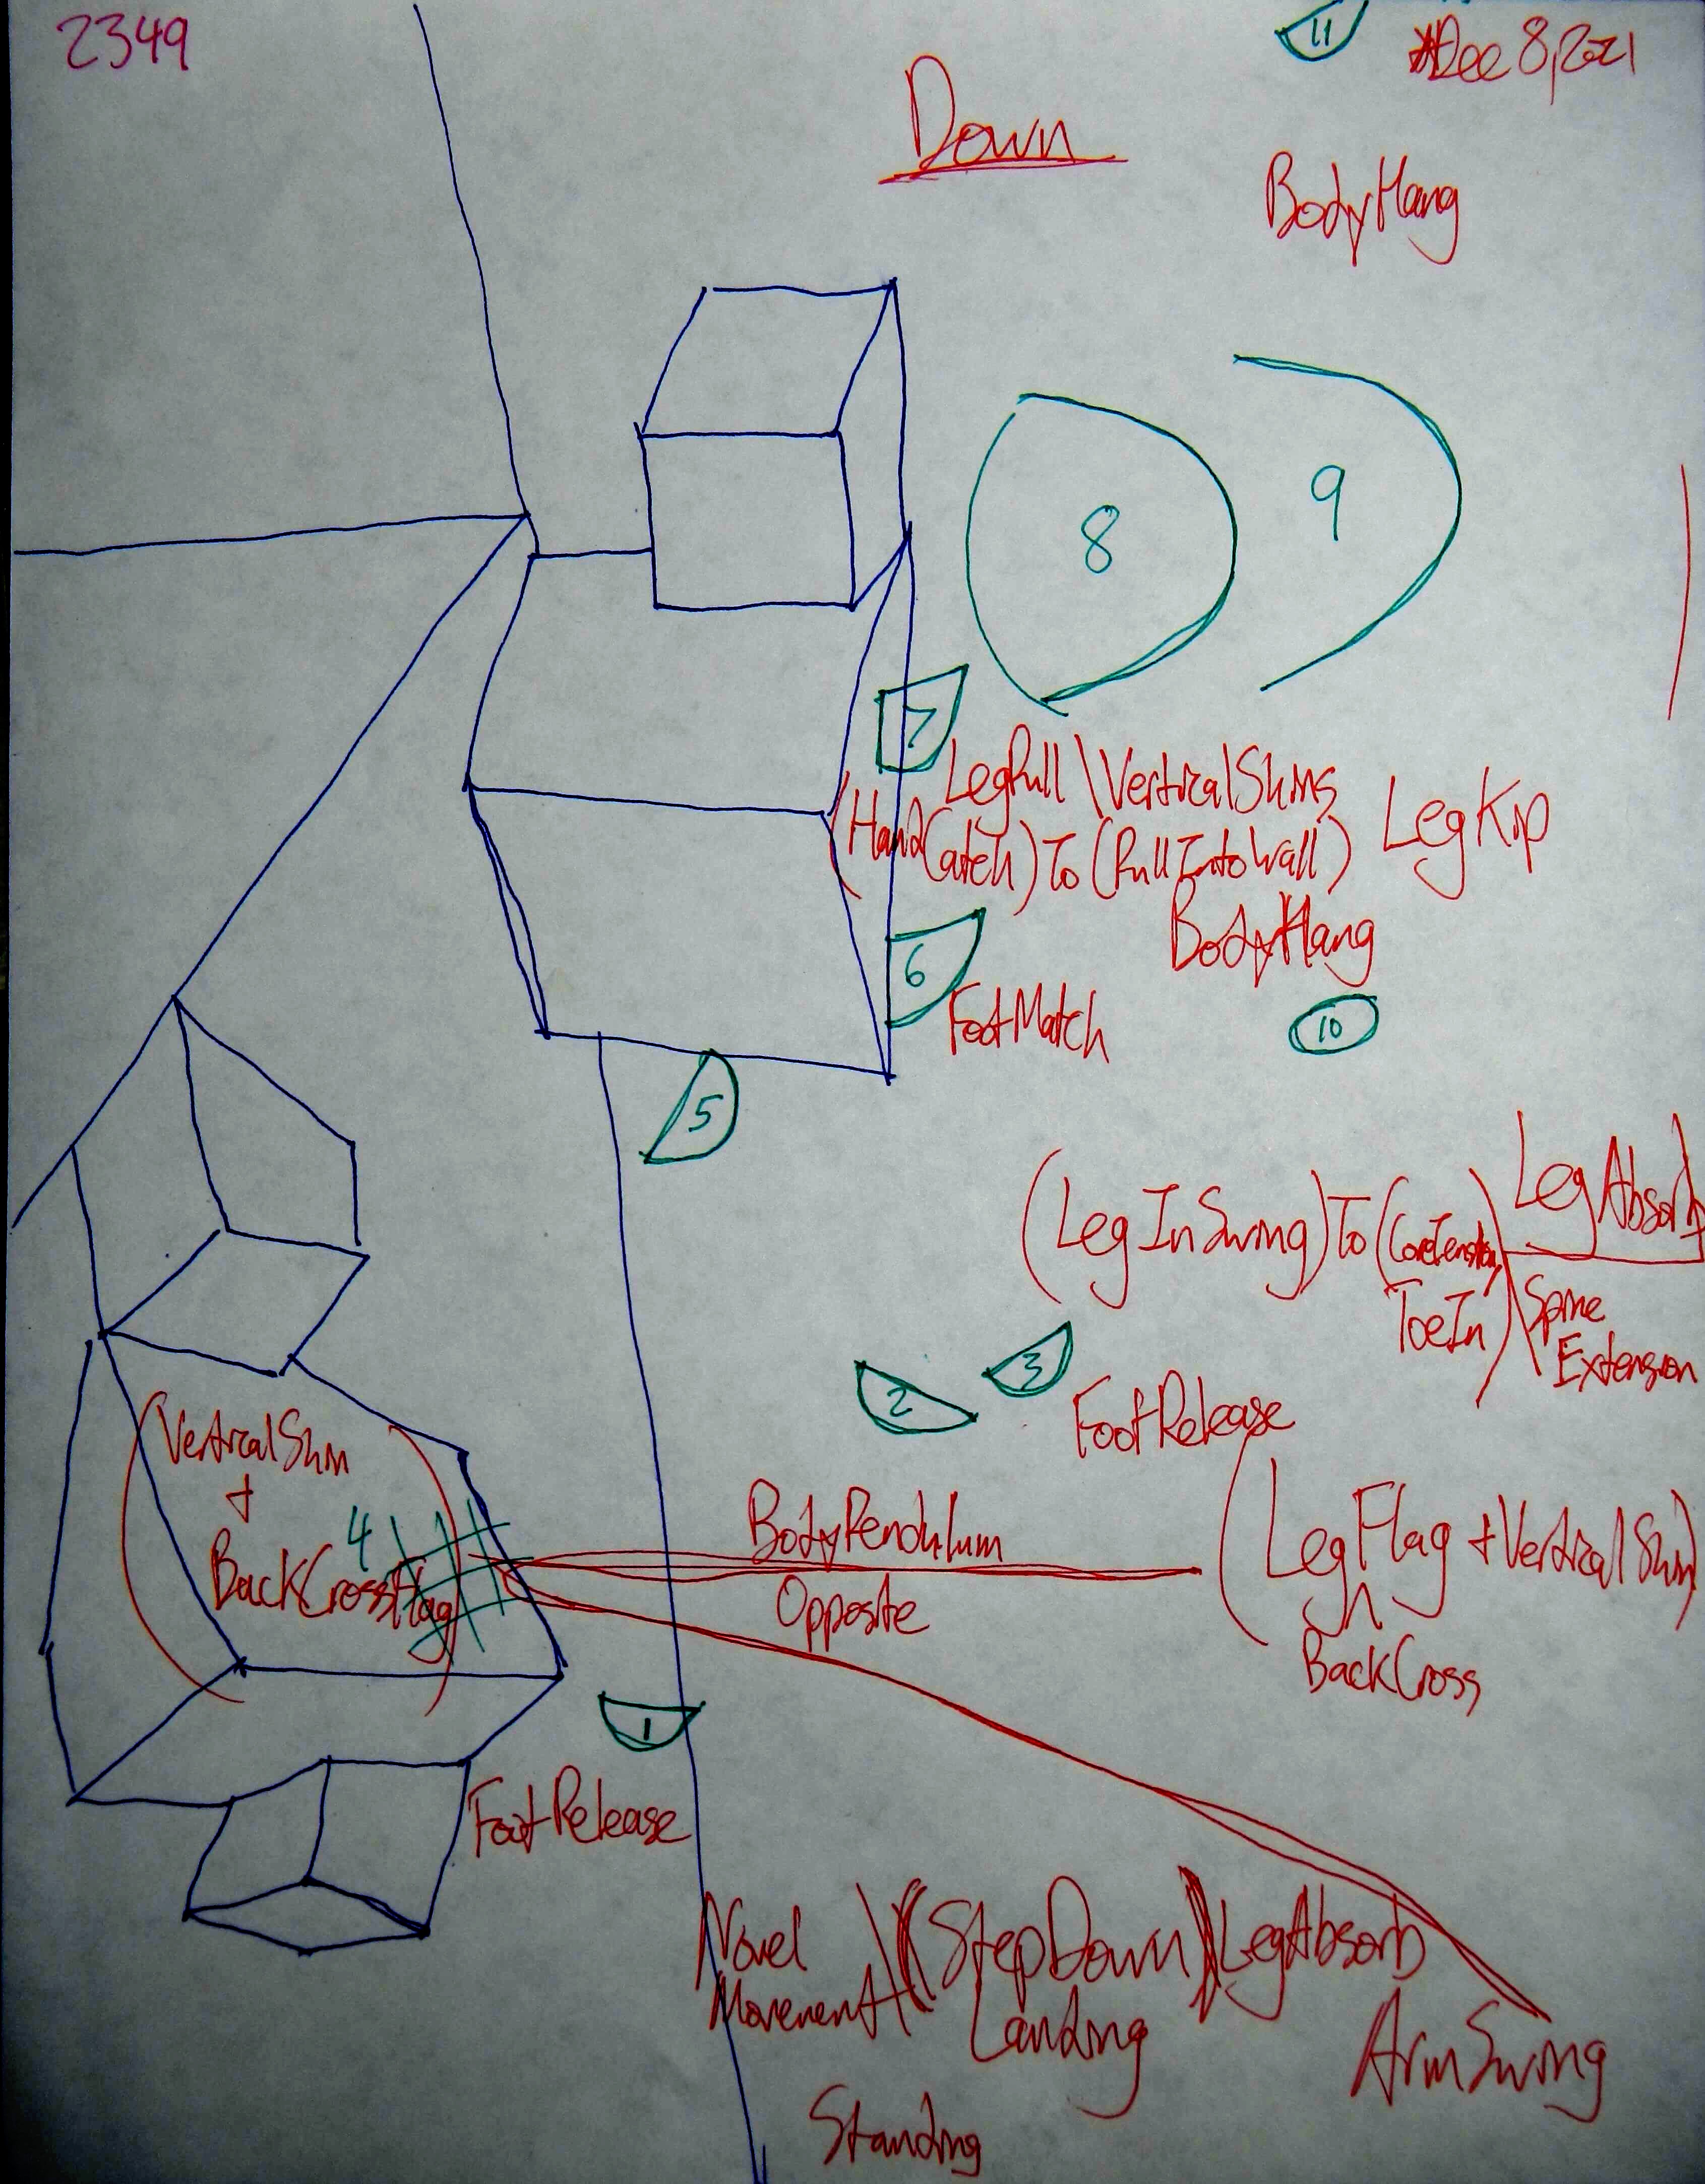 2349
11
Dec 8, 2021
Down
BodyHang
8
9
7
LegPull \ VerticalShins
(HandCatch) To (PullIntoWall)
LegKip
BodyHang
6
FootMatch
10
5
(LegInSwing) To (CoreTension
ToeIn)
LegAbsorb
Spine
Extension
2
3
FootRelease
(VerticalShin
+
BackCrossFlag)
4
BodyPendulum
Opposite
(LegFlag + VerticalShin)
BackCross
1
FootRelease
Novel
Movement \ (StepDown) LegAbsorb
Landing
ArmSwing
Standing